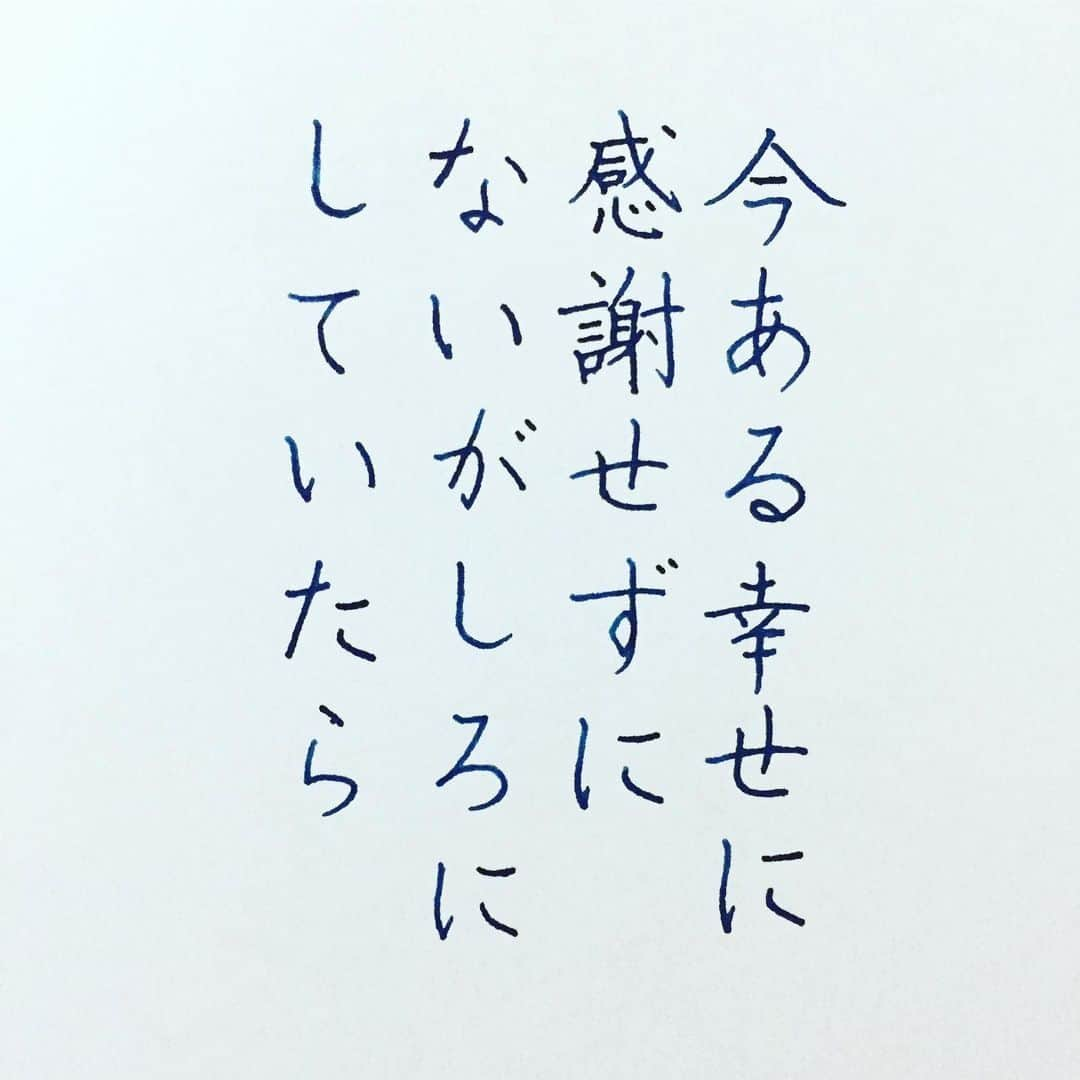 今ある幸せに
感謝せずに
ないがしろに
していたら